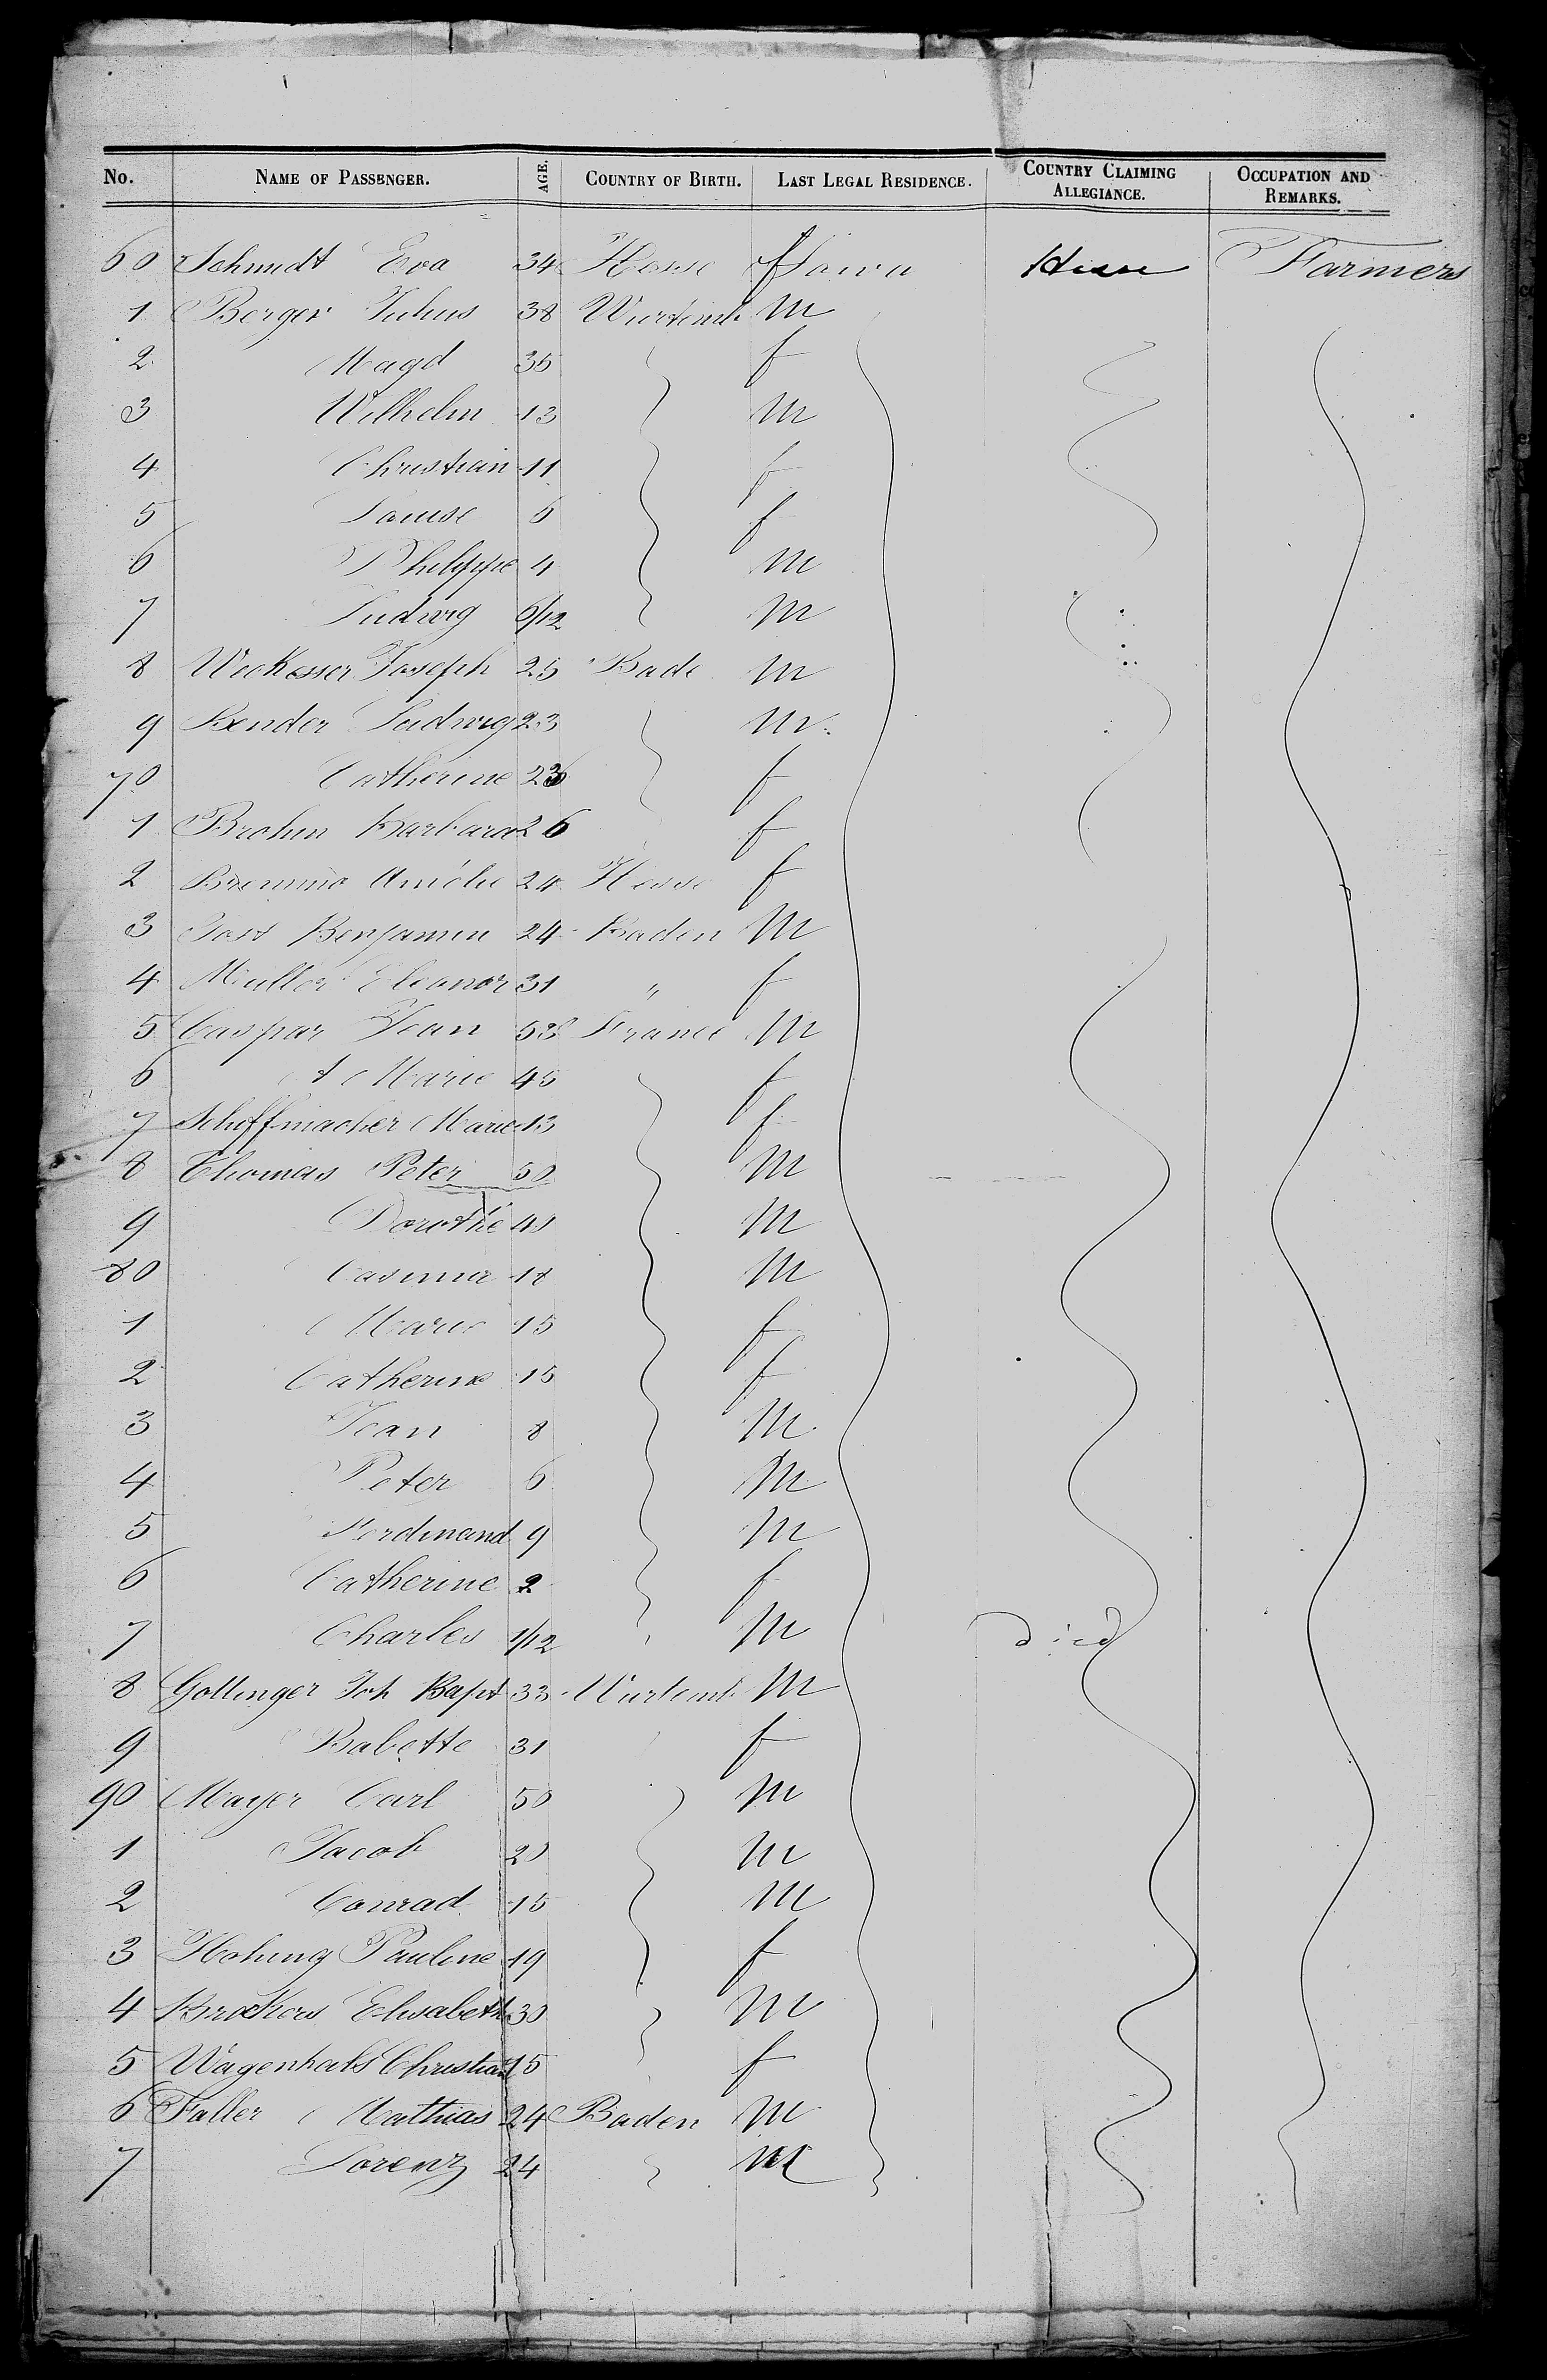 No. NAME OF PASSENGER. AGE. COUNTRY OF BIRTH. LAST LEGAL RESIDENCE. COUNTRY CLAIMING ALLEGIANCE. OCCUPATION AND REMARKS.
60 Schmidt Eva 34 Hesse f Hesse Farmers
1 Berger Julius 38 Wurtemb M
2 Magd 35 f
3 Wilhelm 13 M
4 Christian 11 f
5 Louise 6 f
6 Philippe 4 M
7 Ludwig 6/12 M
8 Weckesser Joseph 25 Bade M
9 Bender Ludwig 23 M
70 Catherine 23 f
1 Brohm Barbara 26 f
2 Amélie 24 Hesse f
3 Jost Benjamin 24 Baden M
4 Muller Eleonor 31 " f
5 Caspar Jean 53 France M
6 A Marie 45 f
7 Schoffmacher Marie 13 f
8 Thomas Peter 50 M
9 Dorothé 40 M
80 Casimir 18 M
1 Marie 15 f
2 Catherine 15 f
3 Jean 8 M
4 Peter 6 M
5 Ferdinand 9 M
6 Catherine 2 f
7 Charles 1/12 M died
8 Gollinger Joh Bapt 33 Wurtemb M
9 Babette 31 f
90 Mayer Carl 50 M
1 Jacob 20 M
2 Conrad 15 M
3 Hohung Pauline 19 f
4 Brokers Elisabeth 30 M
5 Wagenhals Christian 15 f
6 Faller Mathias 24 Baden M
7 Lorenz 24 M